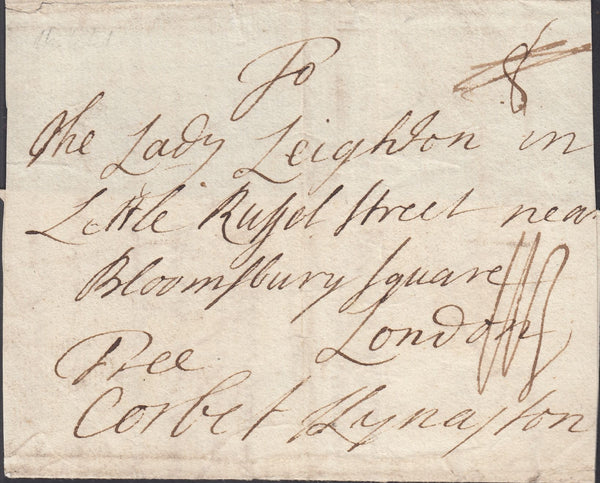 To
the Lady Leighton in
Little Russel street near
Bloomsbury square
London
Free
Corbet Kynaston